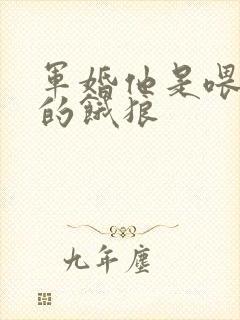 軍婚他是喂
的餓狼
九年塵